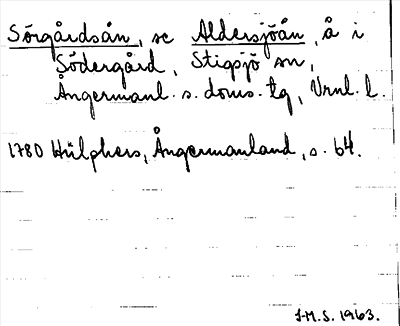 Sörgårdsån, se Aldersjöån, å i
Södergård, Stigsjö sn,
Ångermanl. s. doms. tg, Vrnl. l.
1780 Hülphers, Ångermanland, s. 64.
J-M.S. 1963.